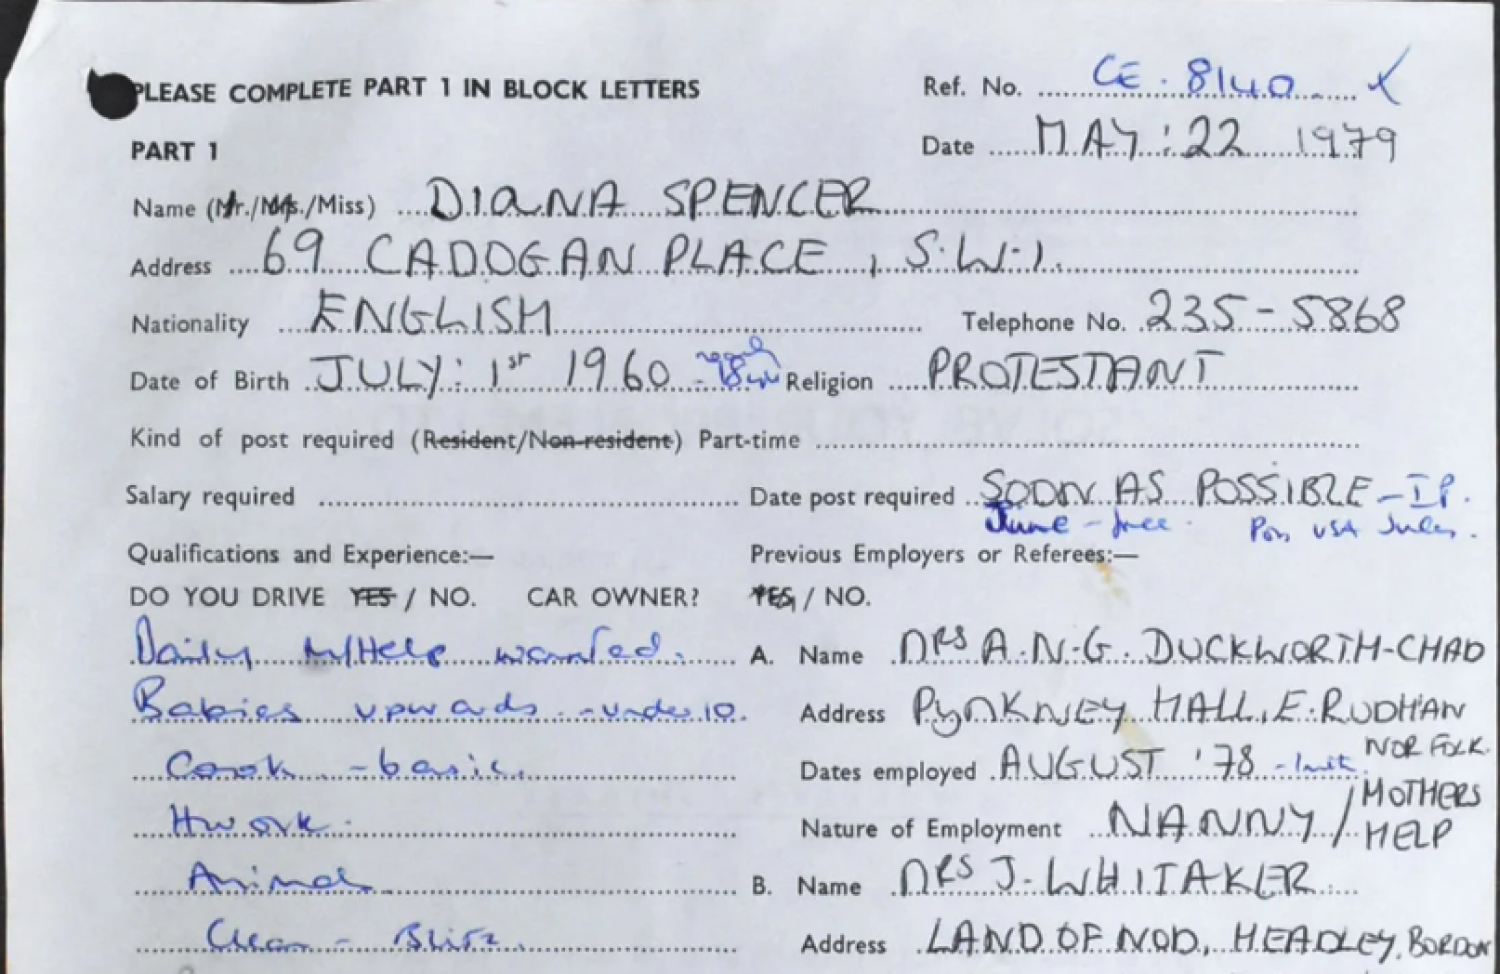 PLEASE COMPLETE PART 1 IN BLOCK LETTERS
Ref. No. CE. 8140
PART 1
Date MAY: 22 1979
Name (Mr./Mrs./Miss) DIANA SPENCER
Address 69 CADOGAN PLACE, S.W.1.
Nationality ENGLISH Telephone No. 235-5868
Date of Birth JULY: 1st 1960 Religion PROTESTANT
Kind of post required (Resident/Non-resident) Part-time
Salary required Date post required SOON AS POSSIBLE
June - free. USA
Qualifications and Experience:— Previous Employers or Referees:—
DO YOU DRIVE YES / NO. CAR OWNER? YES / NO.
Daily M/Help wanted. A. Name MRS A.N.G. DUCKWORTH-CHAD
Babies upwards - under 10. Address PYNKNEY HALL, E. RUDHAN
NORFOLK.
Cook - basic. Dates employed AUGUST '78
Hwork. Nature of Employment NANNY / MOTHERS
HELP
Animal B. Name MRS J. WHITAKER
Clean - Address LAND OF NOD, HEADLEY, BORDON